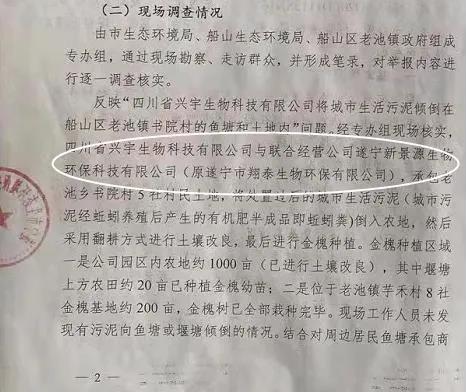 （二）现场调查情况
由市生态环境局、船山生态环境局、船山区老池镇政府组成
专办组，通过现场勘察、走访群众，并形成笔录，对举报内容进
行逐一调查核实。
反映“四川省兴宇生物科技有限公司将城市生活污泥倾倒在
船山区老池镇书院村的鱼塘和土地内”问题。经专办组现场核实，
四川省兴宇生物科技有限公司与联合经营公司遂宁新景源生物
环保科技有限公司（原遂宁市翔泰生物环保有限公司），承包老
池乡书院村 5 社村民土地，将处置过后的城市生活污泥（城市污
泥经蚯蚓养殖后产生的有机肥半成品即蚯蚓粪）倒入农地，然后
采用翻耕方式进行土壤改良，最后进行金槐种植。金槐种植区域
一是公司园区内农地约 1000 亩（已进行土壤改良），其中堰塘
上方农田约 20 亩已种植金槐幼苗；二是位于老池镇芋禾村 8 社
金槐基地约 200 亩，金槐树已全部栽种完毕。现场工作人员未发
现有污泥向鱼塘或堰塘倾倒的情况。结合对周边居民鱼塘承包商
— 2 —